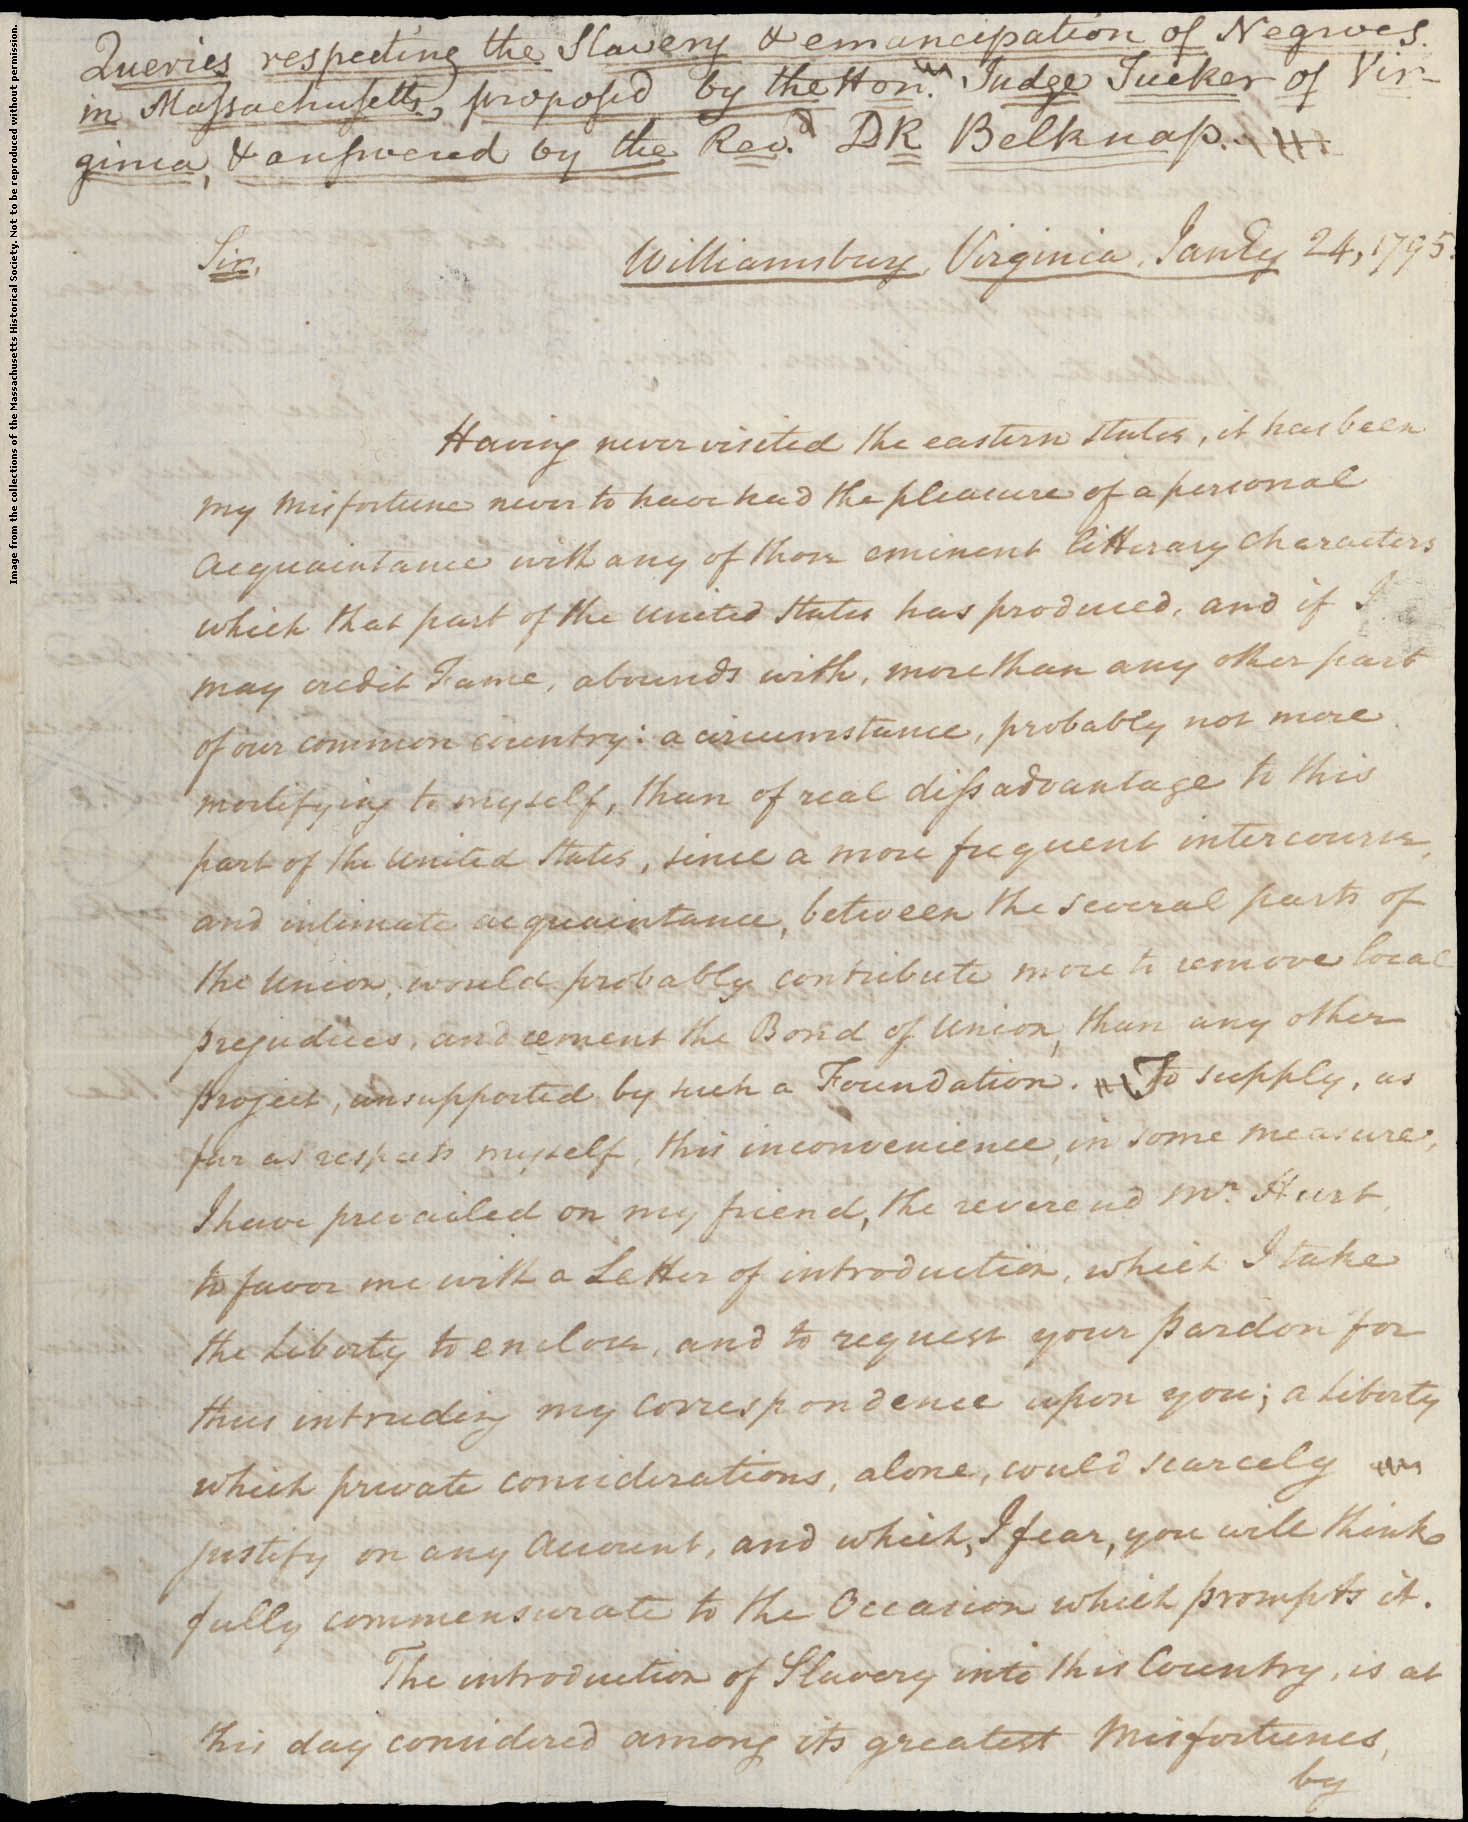 Image from the collections of the Massachusetts Historical Society. Not to be reproduced without permission.
Queries respecting the Slavery & emancipation of Negroes
in Massachusetts, proposed by the Hon. Judge Tucker of Vir-
ginia, & answered by the Rev.d DR Belknap.
Sir,
Williamsburg, Virginia, Jan'y 24, 1795.
Having never visited the eastern states, it has been
my misfortune never to have had the pleasure of a personal
acquaintance with any of those eminent litterary Characters
which that part of the united States has produced, and if I
may credit Fame, abounds with, more than any other part
of our common country: a circumstance, probably not more
mortifying to myself, than of real dissadvantage to this
part of the united States, since a more frequent intercourse,
and intimate acquaintance, between the several parts of
the Union, would probably contribute more to remove local
prejudices, and cement the Bond of Union, than any other
project, unsupported by such a Foundation. To supply, as
far as respects myself, this inconvenience, in some measure,
I have prevailed on my friend, the reverend Mr. Hurt,
to favor me with a Letter of introduction, which I take
the Liberty to enclose, and to request your pardon for
thus intruding my correspondence upon you; a Liberty
which private considerations, alone, would scarcely
justify on any Account, and which, I fear, you will think
fully commensurate to the Occasion which prompts it.
The introduction of Slavery into this Country, is at
this day considered among its greatest Misfortunes,
by